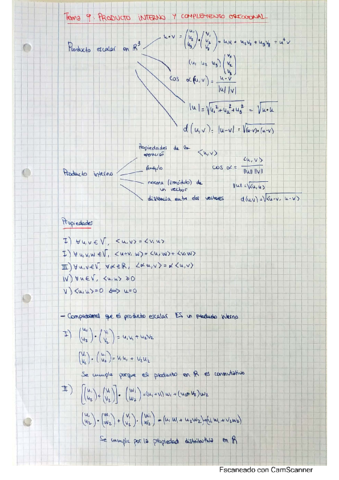 Tema 9. PRODUCTO INTERNO Y COMPLEMENTO ORTOGONAL
Producto escalar en R³
u·v = (u₁ u₂ u₃)·(v₁ v₂ v₃) = u₁v₁ + u₂v₂ + u₃v₃ = uᵗv
(u₁ u₂ u₃) (v₁ v₂ v₃)
cos α(u,v) = u·v / |u| |v|
|u| = √u₁² + u₂² + u₃² = √u·u
d(u,v) = |u-v| = √(u-v)·(u-v)
Producto interno
Propiedades de la
<u,v>
ángulo
cos α = <u,v> / ‖u‖ ‖v‖
norma (módulo) de un vector
‖u‖ = √<u,u>
distancia entre dos vectores
d(u,v) = √<u-v, u-v>
Propiedades
I) ∀ u,v ∈ V, <u,v> = <v,u>
II) ∀ u,v,w ∈ V, <u+v,w> = <u,w> + <v,w>
III) ∀ u,v ∈ V, ∀ α ∈ R, <αu,v> = α <u,v>
IV) ∀ u ∈ V, <u,u> ≥ 0
V) <u,u> = 0 ⟺ u = 0
- Comprobamos que el producto escalar es un producto interno
I) (u₁ u₂)·(v₁ v₂) = u₁v₁ + u₂v₂
(v₁ v₂)·(u₁ u₂) = v₁u₁ + v₂u₂
Se cumple porque el producto en R es conmutativo
II) [(u₁ u₂) + (v₁ v₂)]·(w₁ w₂) = (u₁+v₁)w₁ + (u₂+v₂)w₂
(u₁ u₂)·(w₁ w₂) + (v₁ v₂)·(w₁ w₂) = (u₁w₁ + u₂w₂) + (v₁w₁ + v₂w₂)
Se cumple por la propiedad distributiva en R
Escaneado con CamScanner